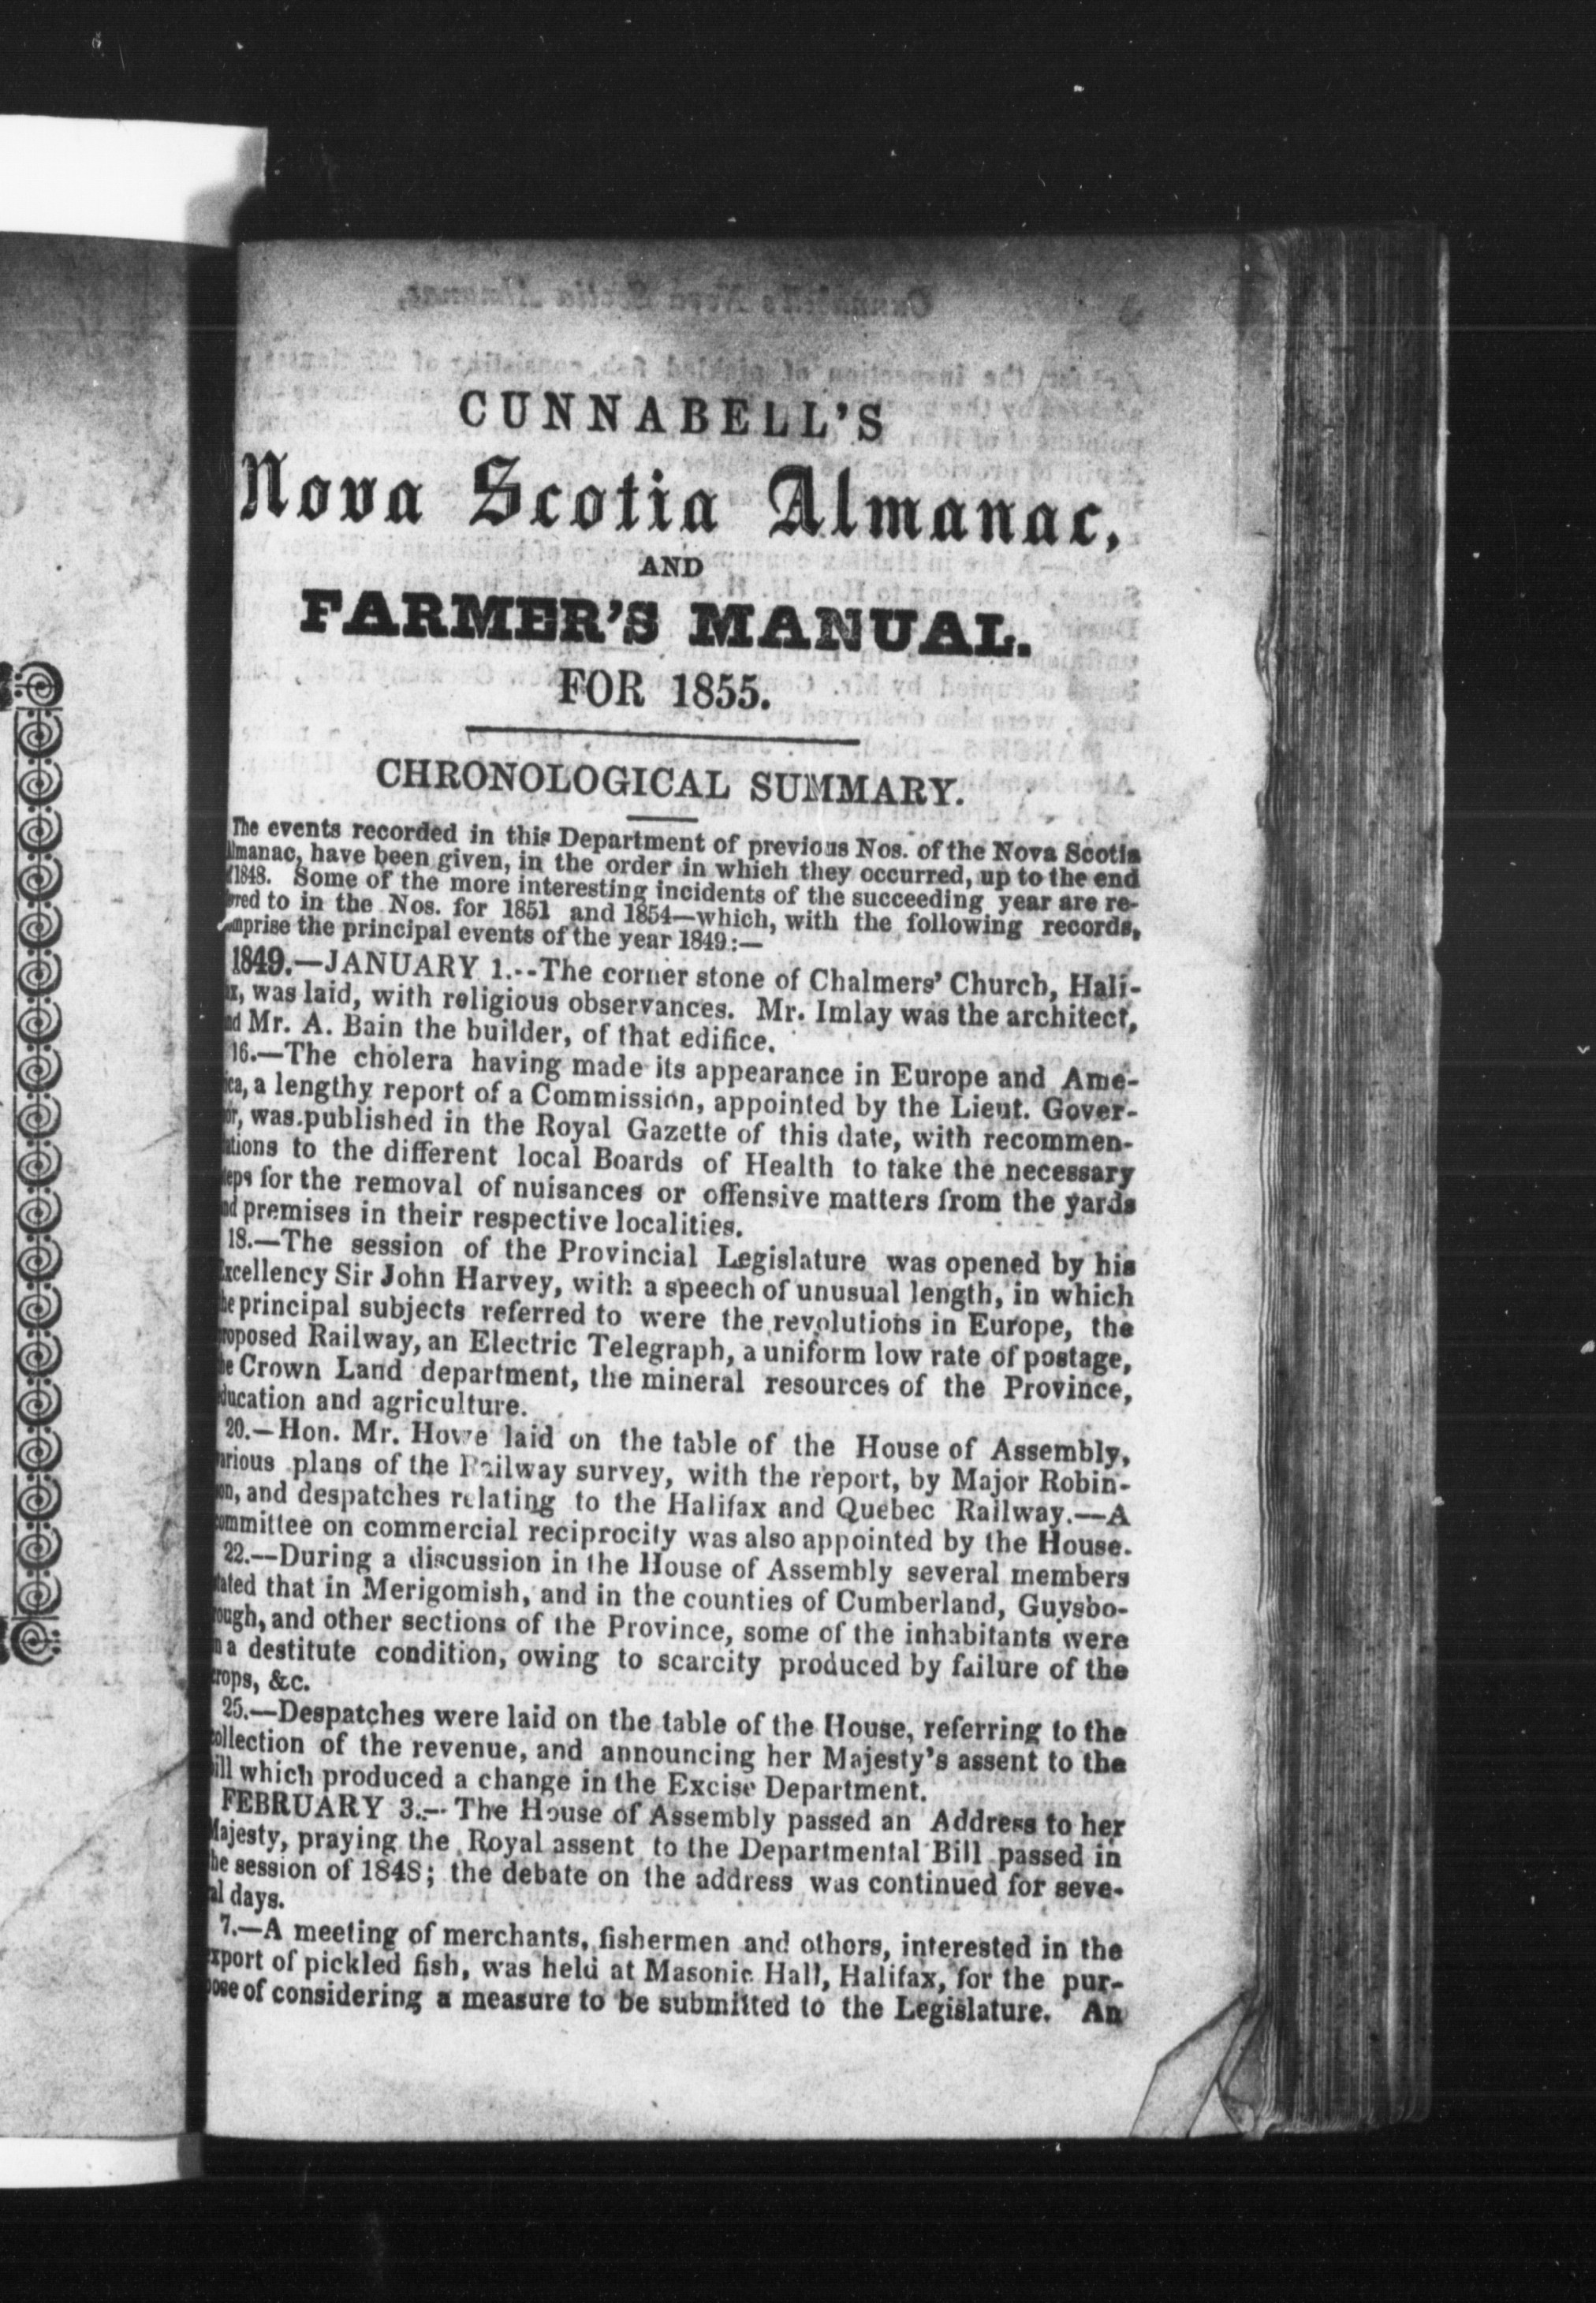 CUNNABELL'S
Nova Scotia Almanac,
AND
FARMER'S MANUAL.
FOR 1855.
CHRONOLOGICAL SUMMARY.
The events recorded in this Department of previous Nos. of the Nova Scotia
lmanac, have been given, in the order in which they occurred, up to the end
f 1848. Some of the more interesting incidents of the succeeding year are re-
ered to in the Nos. for 1851 and 1854—which, with the following records,
mprise the principal events of the year 1849:—
1849.—JANUARY 1.--The corner stone of Chalmers' Church, Hali-
ax, was laid, with religious observances. Mr. Imlay was the architect,
nd Mr. A. Bain the builder, of that edifice.
16.—The cholera having made its appearance in Europe and Ame-
ica, a lengthy report of a Commission, appointed by the Lieut. Gover-
or, was published in the Royal Gazette of this date, with recommen-
ations to the different local Boards of Health to take the necessary
teps for the removal of nuisances or offensive matters from the yards
nd premises in their respective localities.
18.—The session of the Provincial Legislature was opened by his
Excellency Sir John Harvey, with a speech of unusual length, in which
he principal subjects referred to were the revolutions in Europe, the
roposed Railway, an Electric Telegraph, a uniform low rate of postage,
he Crown Land department, the mineral resources of the Province,
ducation and agriculture.
20.—Hon. Mr. Howe laid on the table of the House of Assembly,
arious plans of the Railway survey, with the report, by Major Robin-
on, and despatches relating to the Halifax and Quebec Railway.—A
ommittee on commercial reciprocity was also appointed by the House.
22.—During a discussion in the House of Assembly several members
tated that in Merigomish, and in the counties of Cumberland, Guysbo-
rough, and other sections of the Province, some of the inhabitants were
n a destitute condition, owing to scarcity produced by failure of the
rops, &c.
25.—Despatches were laid on the table of the House, referring to the
ollection of the revenue, and announcing her Majesty's assent to the
ill which produced a change in the Excise Department.
FEBRUARY 3.—The House of Assembly passed an Address to her
Majesty, praying the Royal assent to the Departmental Bill passed in
he session of 1848; the debate on the address was continued for seve-
al days.
7.—A meeting of merchants, fishermen and others, interested in the
xport of pickled fish, was held at Masonic Hall, Halifax, for the pur-
ose of considering a measure to be submitted to the Legislature. An